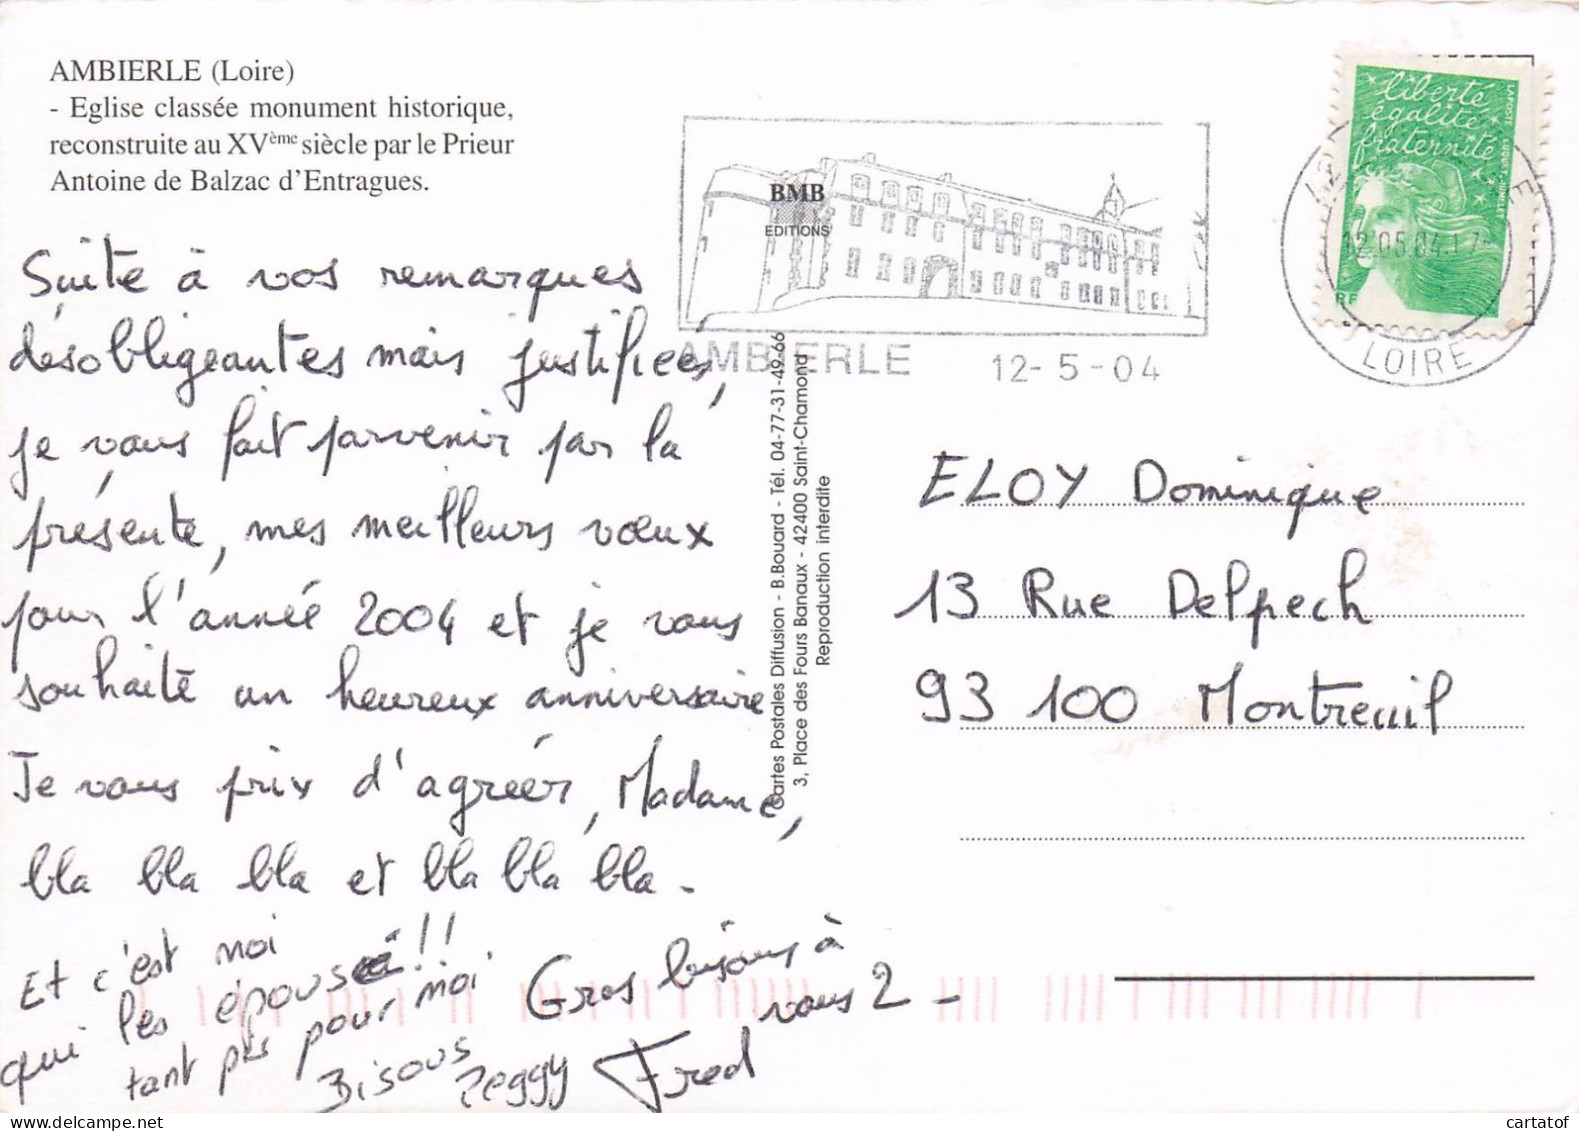 AMBIERLE (Loire)
- Eglise classée monument historique,
reconstruite au XVème siècle par le Prieur
Antoine de Balzac d'Entragues.
BMB
EDITIONS
AMBIERLE 12-5-04
liberté
égalité
fraternité
LA POSTE
RF
12.05.04.17
LOIRE
Suite à vos remarques
désobligeantes mais justifiées,
je vous fait parvenir par la
présente, mes meilleurs vœux
pour l'année 2004 et je vous
souhaite un heureux anniversaire
Je vous prix d'agréer, Madame,
bla bla bla et bla bla bla.
Et c'est moi
qui les épouse !!
tant pis pour moi
Bisous Peggy
Gros bisous à
vous 2 -
Fred
Cartes Postales Diffusion - B.Bouard - Tél. 04-77-31-49-66
3, Place des Fours Banaux - 42400 Saint-Chamond
Reproduction interdite
ELOY Dominique
13 Rue Delpech
93 100 Montreuil
www.delcampe.net
cartatof